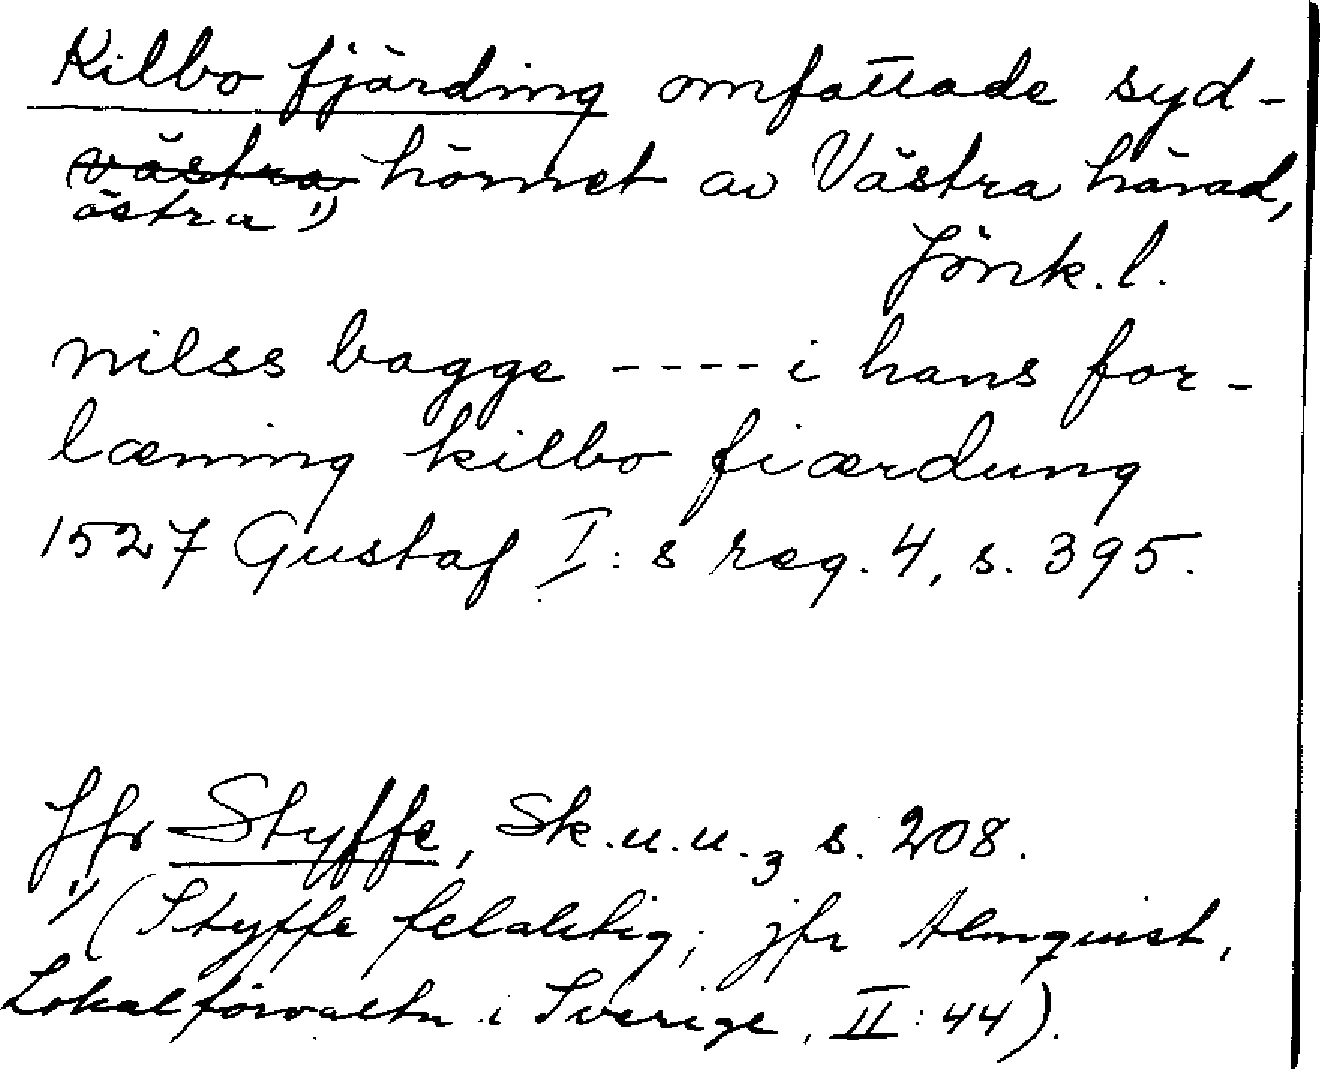 Kilbo fjärding omfattade syd-
västra hörnet av Västra härad,
östra 1)
Jönk.l.
nilss bagge ---- i hans for-
læning kilbo fiærdung
1527 Gustaf I:s reg. 4, s. 395.
Jfr Styffe, Sk.u.u. 3 s. 208.
1) (Styffe felaktig; jfr Almquist,
Lokalförvaltn i Sverige, II:44).